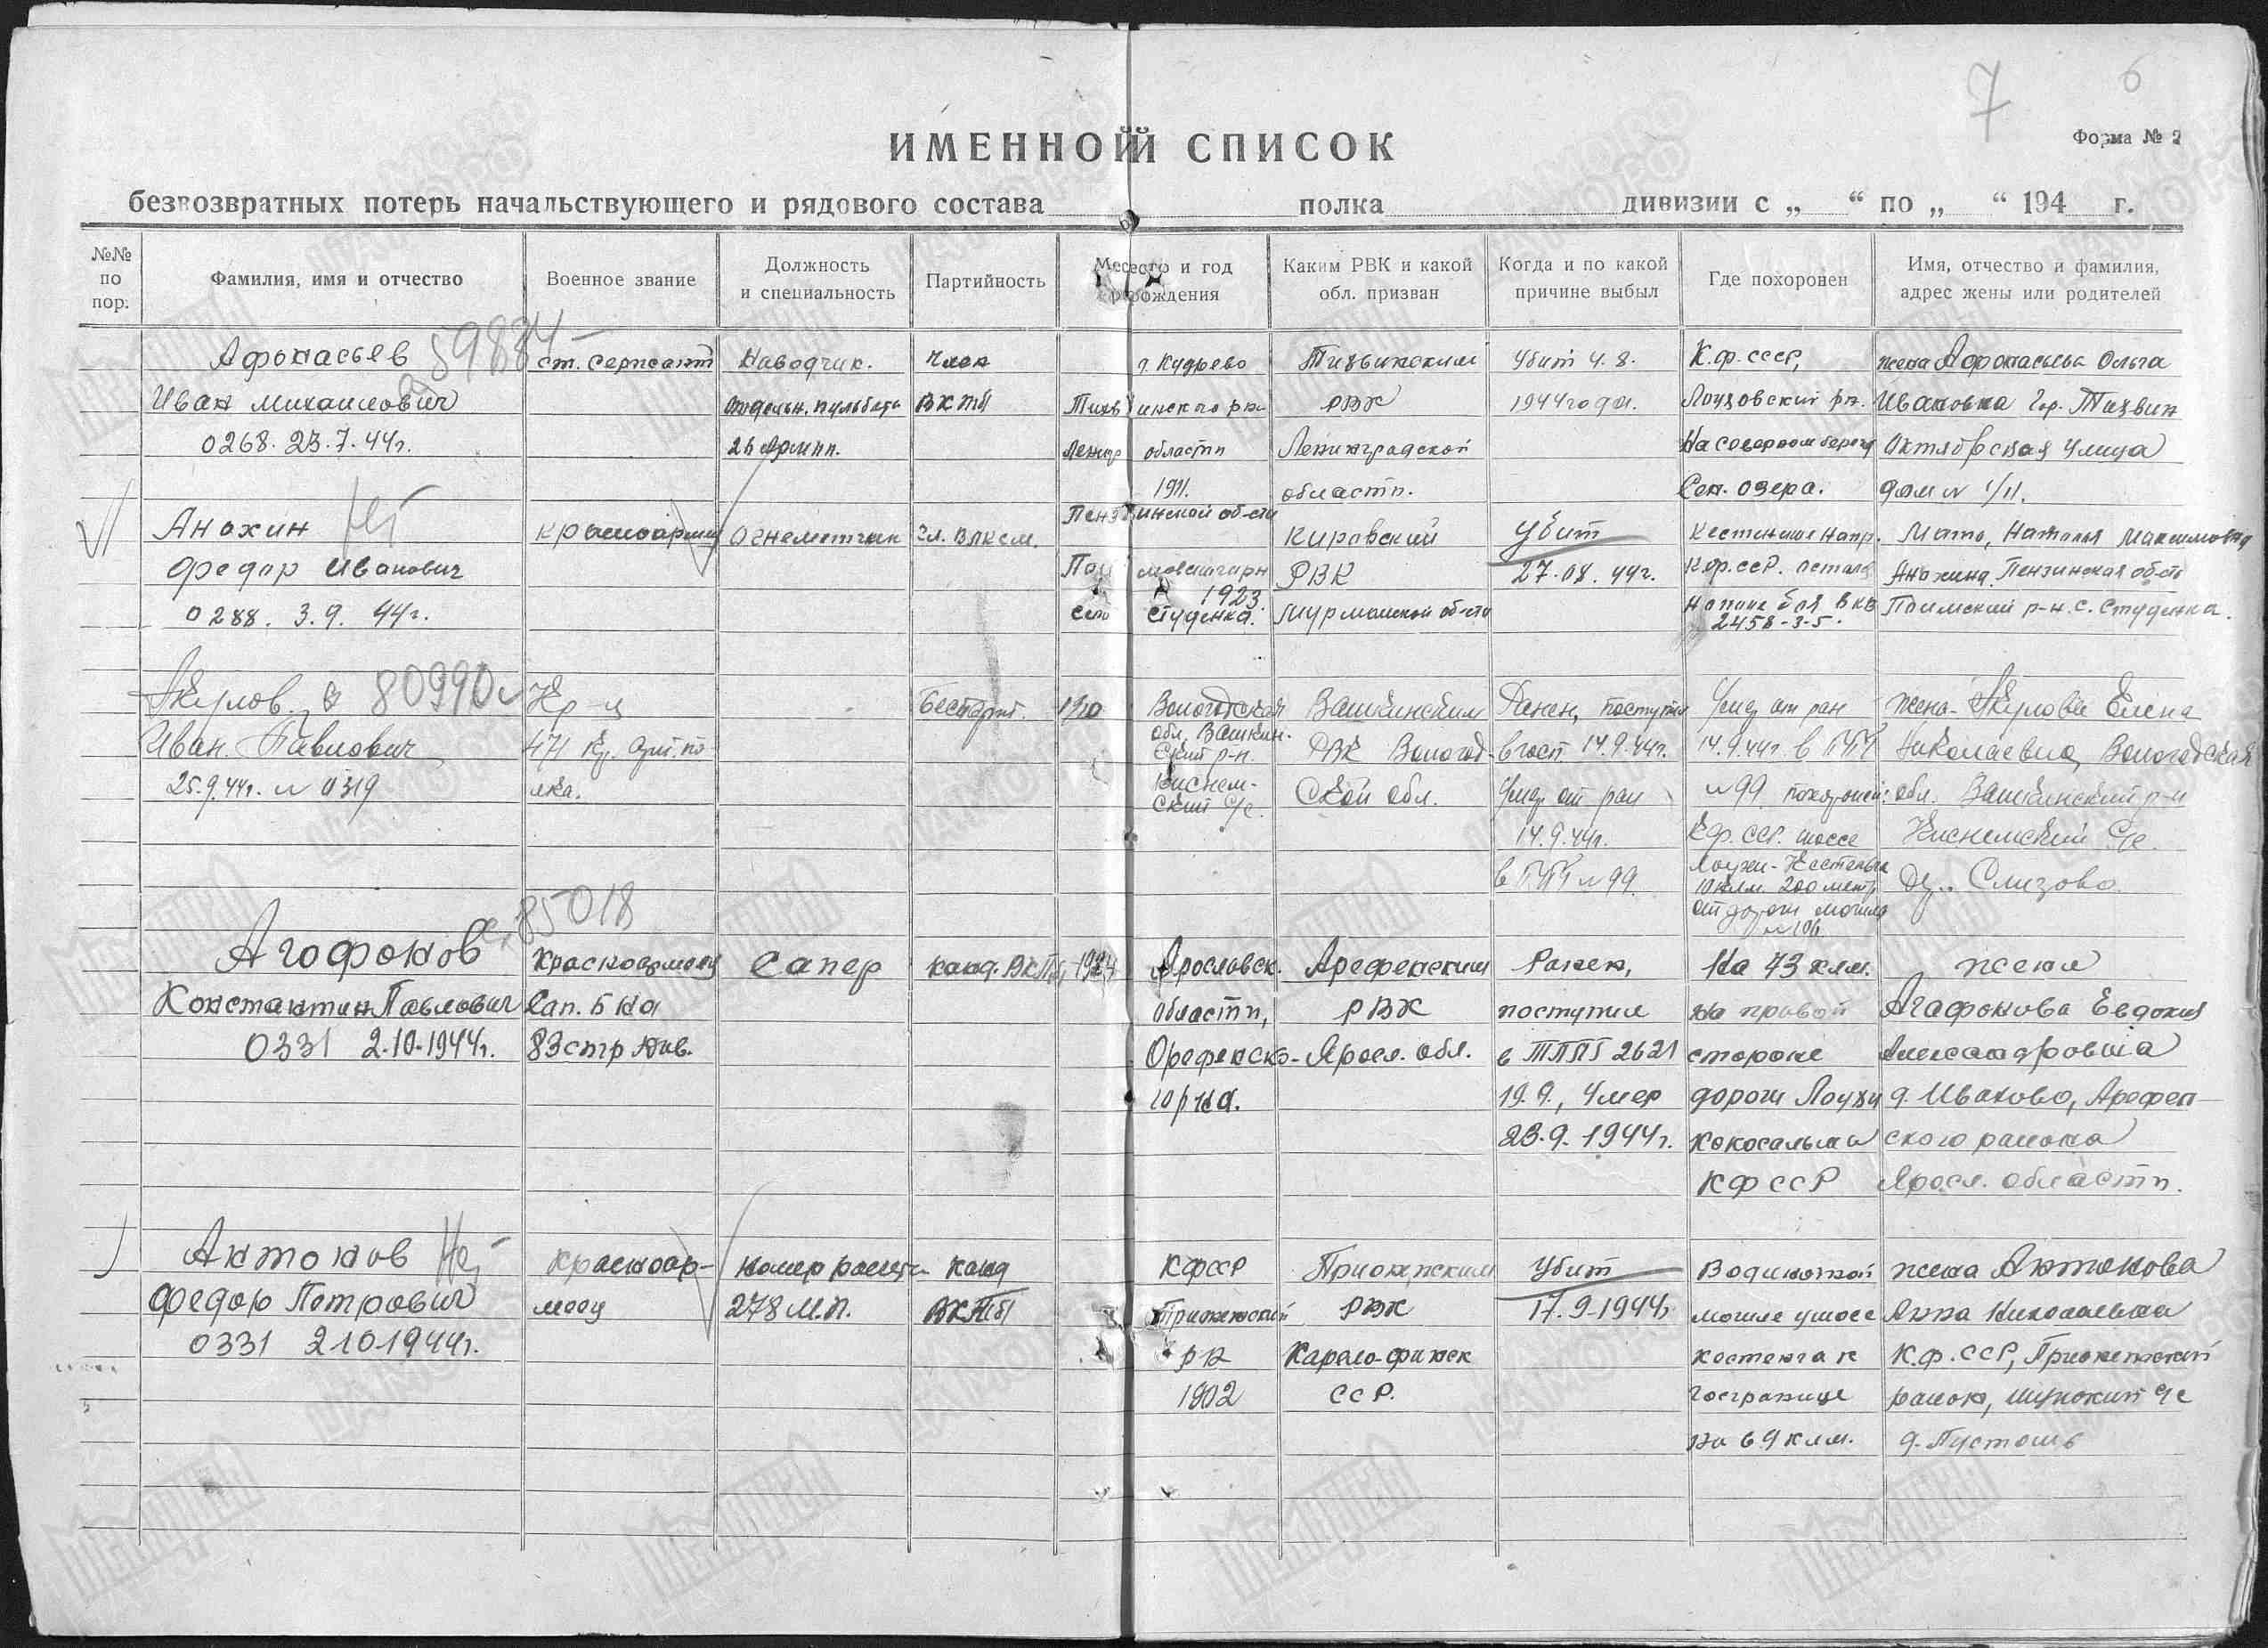 7 6
ИМЕННОЙ СПИСОК
Форма № 2
безвозвратных потерь начальствующего и рядового состава полка дивизии с „ “ по „ “ 194 г.
№№ по пор.
Фамилия, имя и отчество
Военное звание
Должность и специальность
Партийность
Место и год рождения
Каким РВК и какой обл. призван
Когда и по какой причине выбыл
Где похоронен
Имя, отчество и фамилия, адрес жены или родителей
Афонасьев 59884 ст. сержант Наводчик. член д. Кудрево Тихвинским Убит 4.8. К.ф.ссср, жена Афонасьева Ольга
Иван Михаилович ВКПб Тихвинского рн РВК 1944 года. Лоуховский рн. Ивановна гор. Тихвин
0268. 23.7.44г. 26 Армии. Ленигр области Ленинградской На северном берегу Октябрьская улица
1911. области. Сен. озера. дом № 1/11.
Пензинской об-сти
Анохин Нет красноармеец Огнеметчик Чл. влксм. Кировский Убит Кестинское напр. Мать, Наталья Максимовна
Федор Иванович РВК 27.08.44г. К.ф.ссР. остался Анохина. Пензинская об-сть
1923
0288. 3.9.44г. село Студенка. Мурманской об-сти на поле боя в кв Поимский р-н. с. Студенка.
2458-3-5.
Акулов. 80990 Кр-ц беспарт. 1910 Вологодская Вашкинским Ранен, поступил Умер от ран жена- Акулова Елена
Иван Павлович 471 обл. Вашкинский р-н. РВК Вологод- в госп. 14.9.44г. 14.9.44г. в Николаевна, Вологодская
25.9.44г. № 0319 лка. Киснемский С/с. ской обл. Умер от ран № 99 похоронен: обл. Вашкинский р-н
14.9.44г. Кф.ССР. шоссе Киснемский С/с.
в № 99. Лоухи-Кестеньга Д. Слизово.
10 клм. 200 метр
от дороги могила
№ 106
85018
Агофонов Красноармеец Сапер канд. ВКПб, 1924 Ярославск. Арефенским Ранен, На 43 клм. жена
Константин Павлович Сап. б-на области, РВК поступил на правой Агафонова Евдокия
0331 2.10.1944г. 83 стр див. Орефенско- Яросл. обл. в ТППГ 2621 стороне Александровна
го р на. 19.9., умер дороги Лоухи д. Иваново, Арефен-
23.9.1944г. Кокосальма ского раиона
КФССР Яросл. области.
Антонов Нет красноар- Номер расчета Канд КФССР Прионежским Убит В одиночной жена Антонова
Федор Петрович меец 278 М.П. ВКПб Прионежский РВК 17.9-1944г могиле у шоссе Анна Николаевна
0331 2.10.1944г. р н Карело-финск Костеньга к К.ф.ССР, Прионежский
1902 ССР. госгранице раион, с/с
на 69 клм. д. Пустошь